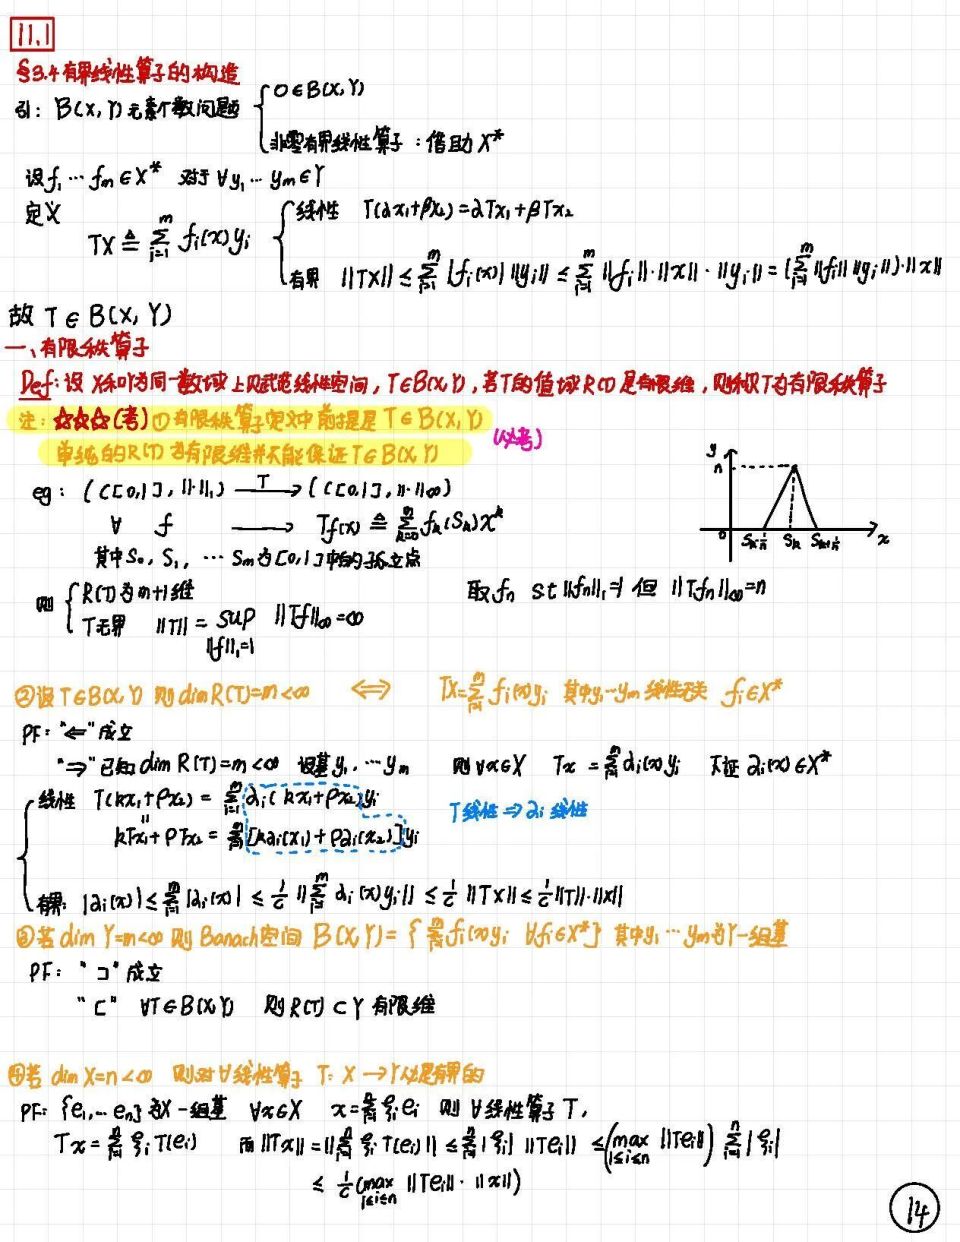 11.1
§3.4 有界线性算子的构造
引: B(X,Y)元素个数问题 { 0∈B(X,Y)
非零有界线性算子:借助X*
设f₁…fₘ∈X* 对于∀y₁…yₘ∈Y
定义 TX ≜ Σᵢ₌₁ᵐ fᵢ(x)yᵢ { 线性 T(αx₁+βx₂)=αTx₁+βTx₂
有界 ||TX|| ≤ Σᵢ₌₁ᵐ |fᵢ(x)| ||yᵢ|| ≤ Σᵢ₌₁ᵐ ||fᵢ||·||x||·||yᵢ|| = (Σᵢ₌₁ᵐ ||fᵢ|| ||yᵢ||)·||x||
故 T∈B(X,Y)
一、有限秩算子
Def: 设X和Y为同一数域上赋范线性空间, T∈B(X,Y), 若T的值域R(T)是有限维, 则称T为有限秩算子
注: ☆☆☆(考) ①有限秩算子定义中前提是 T∈B(X,Y)
(必考)
单纯的R(T)为有限维并不能保证T∈B(X,Y)
eg: (C[0,1], ||·||₁) —T→ (C[0,1], ||·||∞)
∀ f → Tf(x) ≜ Σₖ₌₀ᵐ fₖ(Sₖ)xᵏ
其中S₀, S₁, … Sₘ为[0,1]中的孤立点
y n 0 Sₖ-1/n Sₖ Sₖ+1/n x
则 { R(T)为m+1维
取fₙ st ||fₙ||₁=1 但 ||Tfₙ||∞=n
T无界 ||T|| = sup ||Tf||∞=∞
||f||₁=1
②设T∈B(X,Y) 则dimR(T)=m<∞ ⟺ TX=Σᵢ₌₁ᵐ fᵢ(x)yᵢ 其中y₁…yₘ线性无关 fᵢ∈X*
PF: "⇐"成立
"⇒"已知dim R(T)=m<∞ 设基y₁, …yₘ 则∀x∈X Tx = Σᵢ₌₁ᵐ αᵢ(x)yᵢ 下证 αᵢ(x)∈X*
{ 线性 T(kx₁+ρx₂) = Σᵢ₌₁ᵐ αᵢ(kx₁+ρx₂)yᵢ
T线性⇒αᵢ线性
||
kTx₁+ρTx₂ = Σᵢ₌₁ᵐ [kαᵢ(x₁)+ραᵢ(x₂)]yᵢ
有界: |αᵢ(x)| ≤ Σᵢ₌₁ᵐ |αᵢ(x)| ≤ 1/c ||Σᵢ₌₁ᵐ αᵢ(x)yᵢ|| ≤ 1/c ||Tx|| ≤ 1/c ||T||·||x||
③若dim Y=m<∞ 则Banach空间 B(X,Y)={Σᵢ₌₁ᵐ fᵢ(x)yᵢ ∀fᵢ∈X*} 其中y₁…yₘ为Y一组基
PF: "⊃"成立
"⊂" ∀T∈B(X,Y) 则R(T)⊂Y 有限维
④若dim X=n<∞ 则对∀线性算子 T: X→Y必是有界的
PF: {e₁,…eₙ}为X一组基 ∀x∈X x=Σᵢ₌₁ⁿ ξᵢeᵢ 则∀线性算子T,
Tx = Σᵢ₌₁ⁿ ξᵢT(eᵢ) 而||Tx||=||Σᵢ₌₁ⁿ ξᵢT(eᵢ)|| ≤ Σᵢ₌₁ⁿ |ξᵢ| ||Teᵢ|| ≤ (max ||Teᵢ||) Σᵢ₌₁ⁿ |ξᵢ|
1≤i≤n
≤ 1/c (max ||Teᵢ||·||x||)
1≤i≤n
14